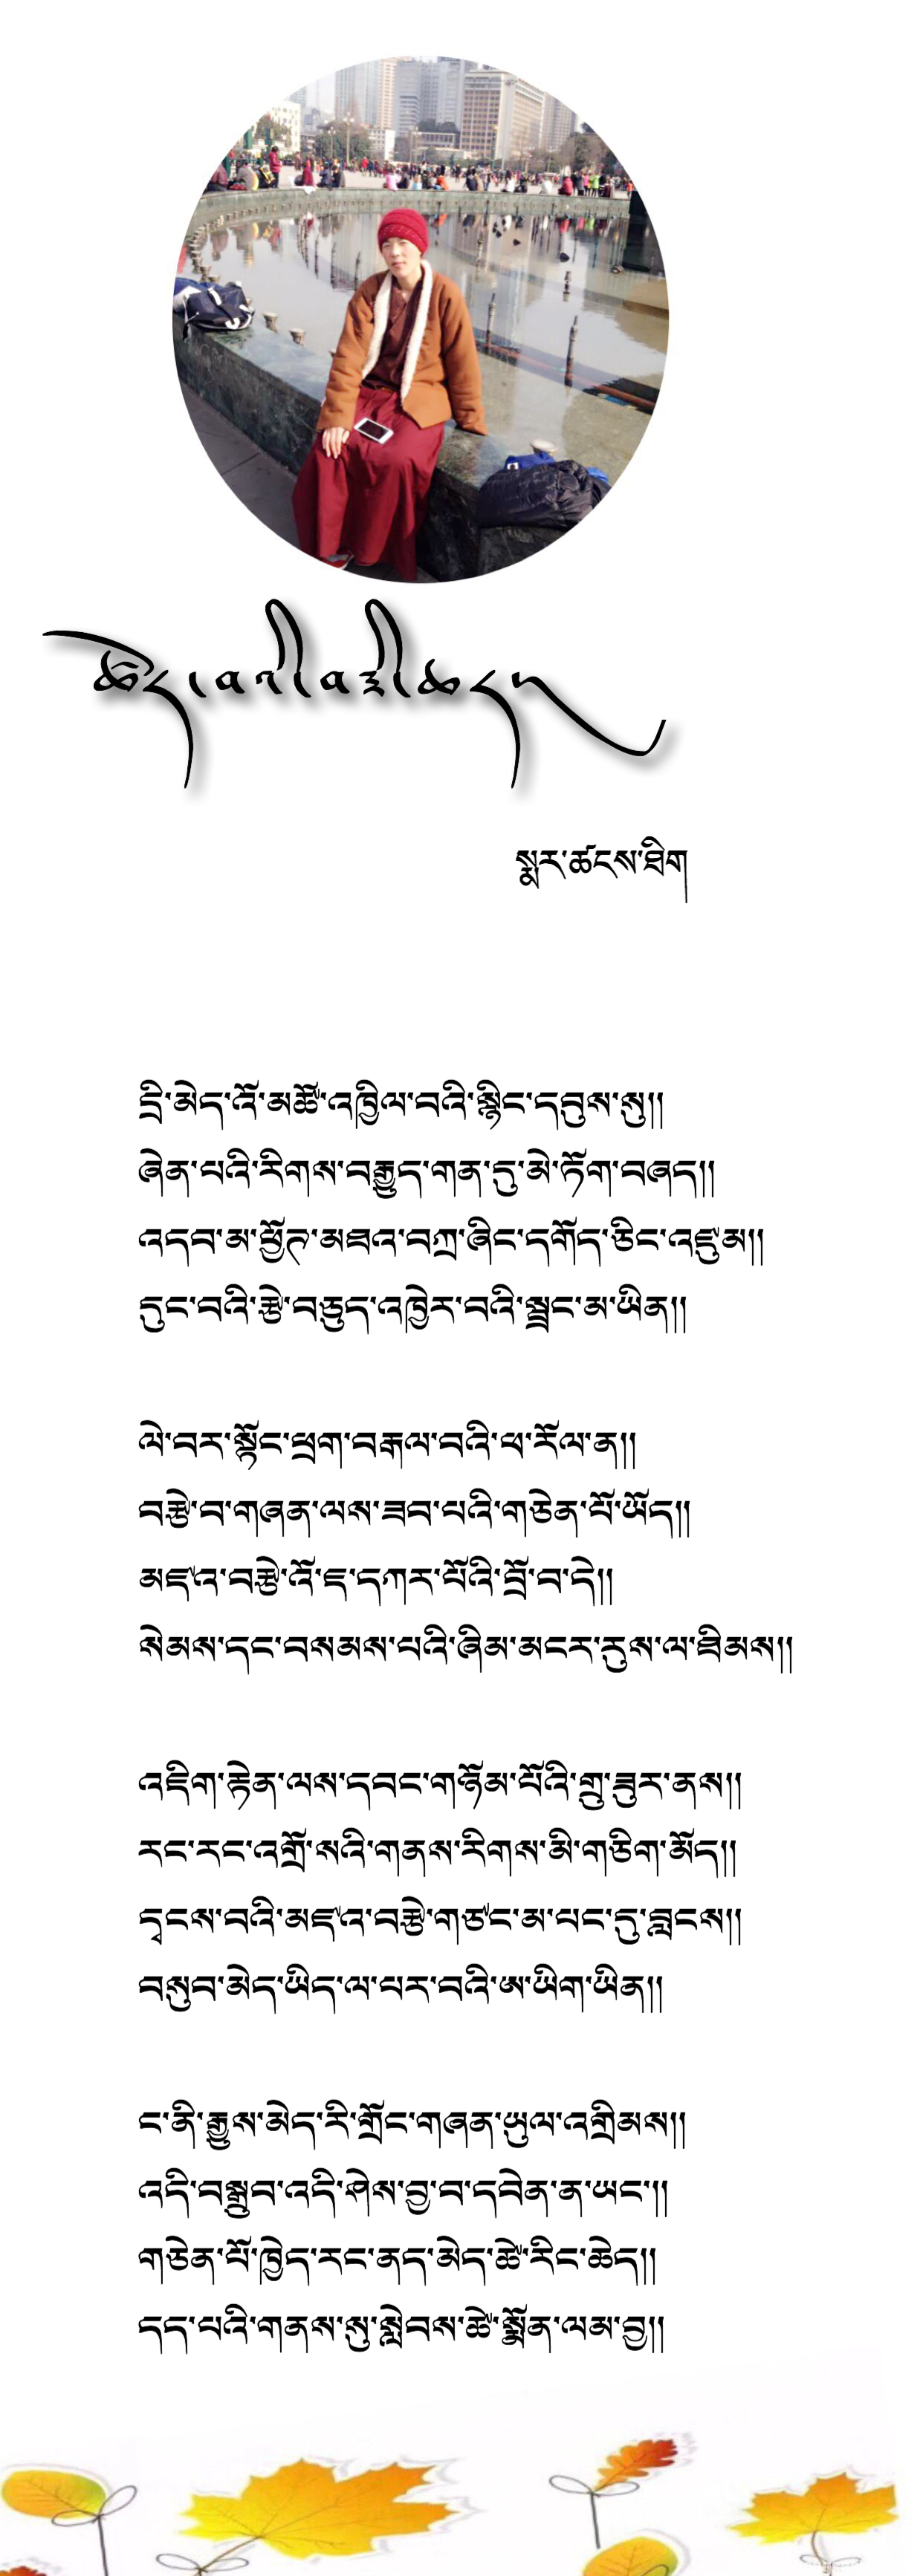 སྨར་ཚངས་ཐིག
དྲི་མེད་འོ་མཚོ་འཁྱིལ་བའི་སྙིང་དབུས་སུ།།
ཞེན་པའི་རིགས་བརྒྱུད་གན་དུ་མེ་ཏོག་བཞད།།
འདབ་མ་ཕྱོཏ་མཐའ་བཀྲ་ཞིང་དགོད་ཅིང་འཛུམ།།
དུང་བའི་རྩེ་བཅུད་འཁྱེར་བའི་སྦྲང་མ་ཡིན།།
ལེ་བར་སྟོང་ཕྲག་བརྒལ་བའི་ཕ་རོལ་ན།།
བརྩེ་བ་གཞན་ལས་ཟབ་པའི་གཅེན་པོ་ཡོད།།
མཛའ་བརྩེ་འོ་ཇ་དཀར་པོའི་བྲོ་བ་དེ།།
སེམས་དང་བསམས་པའི་ཞིམ་མངར་རུས་ལ་ཐིམས།།
འཇིག་རྟེན་ལས་དབང་གཉོམ་པོའི་གྲུ་ཟུར་ནས།།
རང་རང་འགྲོ་སའི་གནས་རིགས་མི་གཅིག་མོད།།
དྭངས་བའི་མཛའ་བརྩེ་གཙང་མ་པང་དུ་བླངས།།
བསུབ་མེད་ཡིད་ལ་པར་བའི་ཨ་ཡིག་ཡིན།།
ང་ནི་རྒྱུས་མེད་རི་གྲོང་གཞན་ཡུལ་འགྲིམས།།
འདི་བསྒྲུབ་འདི་ཤེས་བྱ་བ་དབེན་ན་ཡང་།།
གཅེན་པོ་ཁྱེད་རང་ནད་མེད་ཚེ་རིང་ཆེད།།
དད་པའི་གནས་སུ་སླེབས་ཚེ་སྨོན་ལམ་བྱ།།